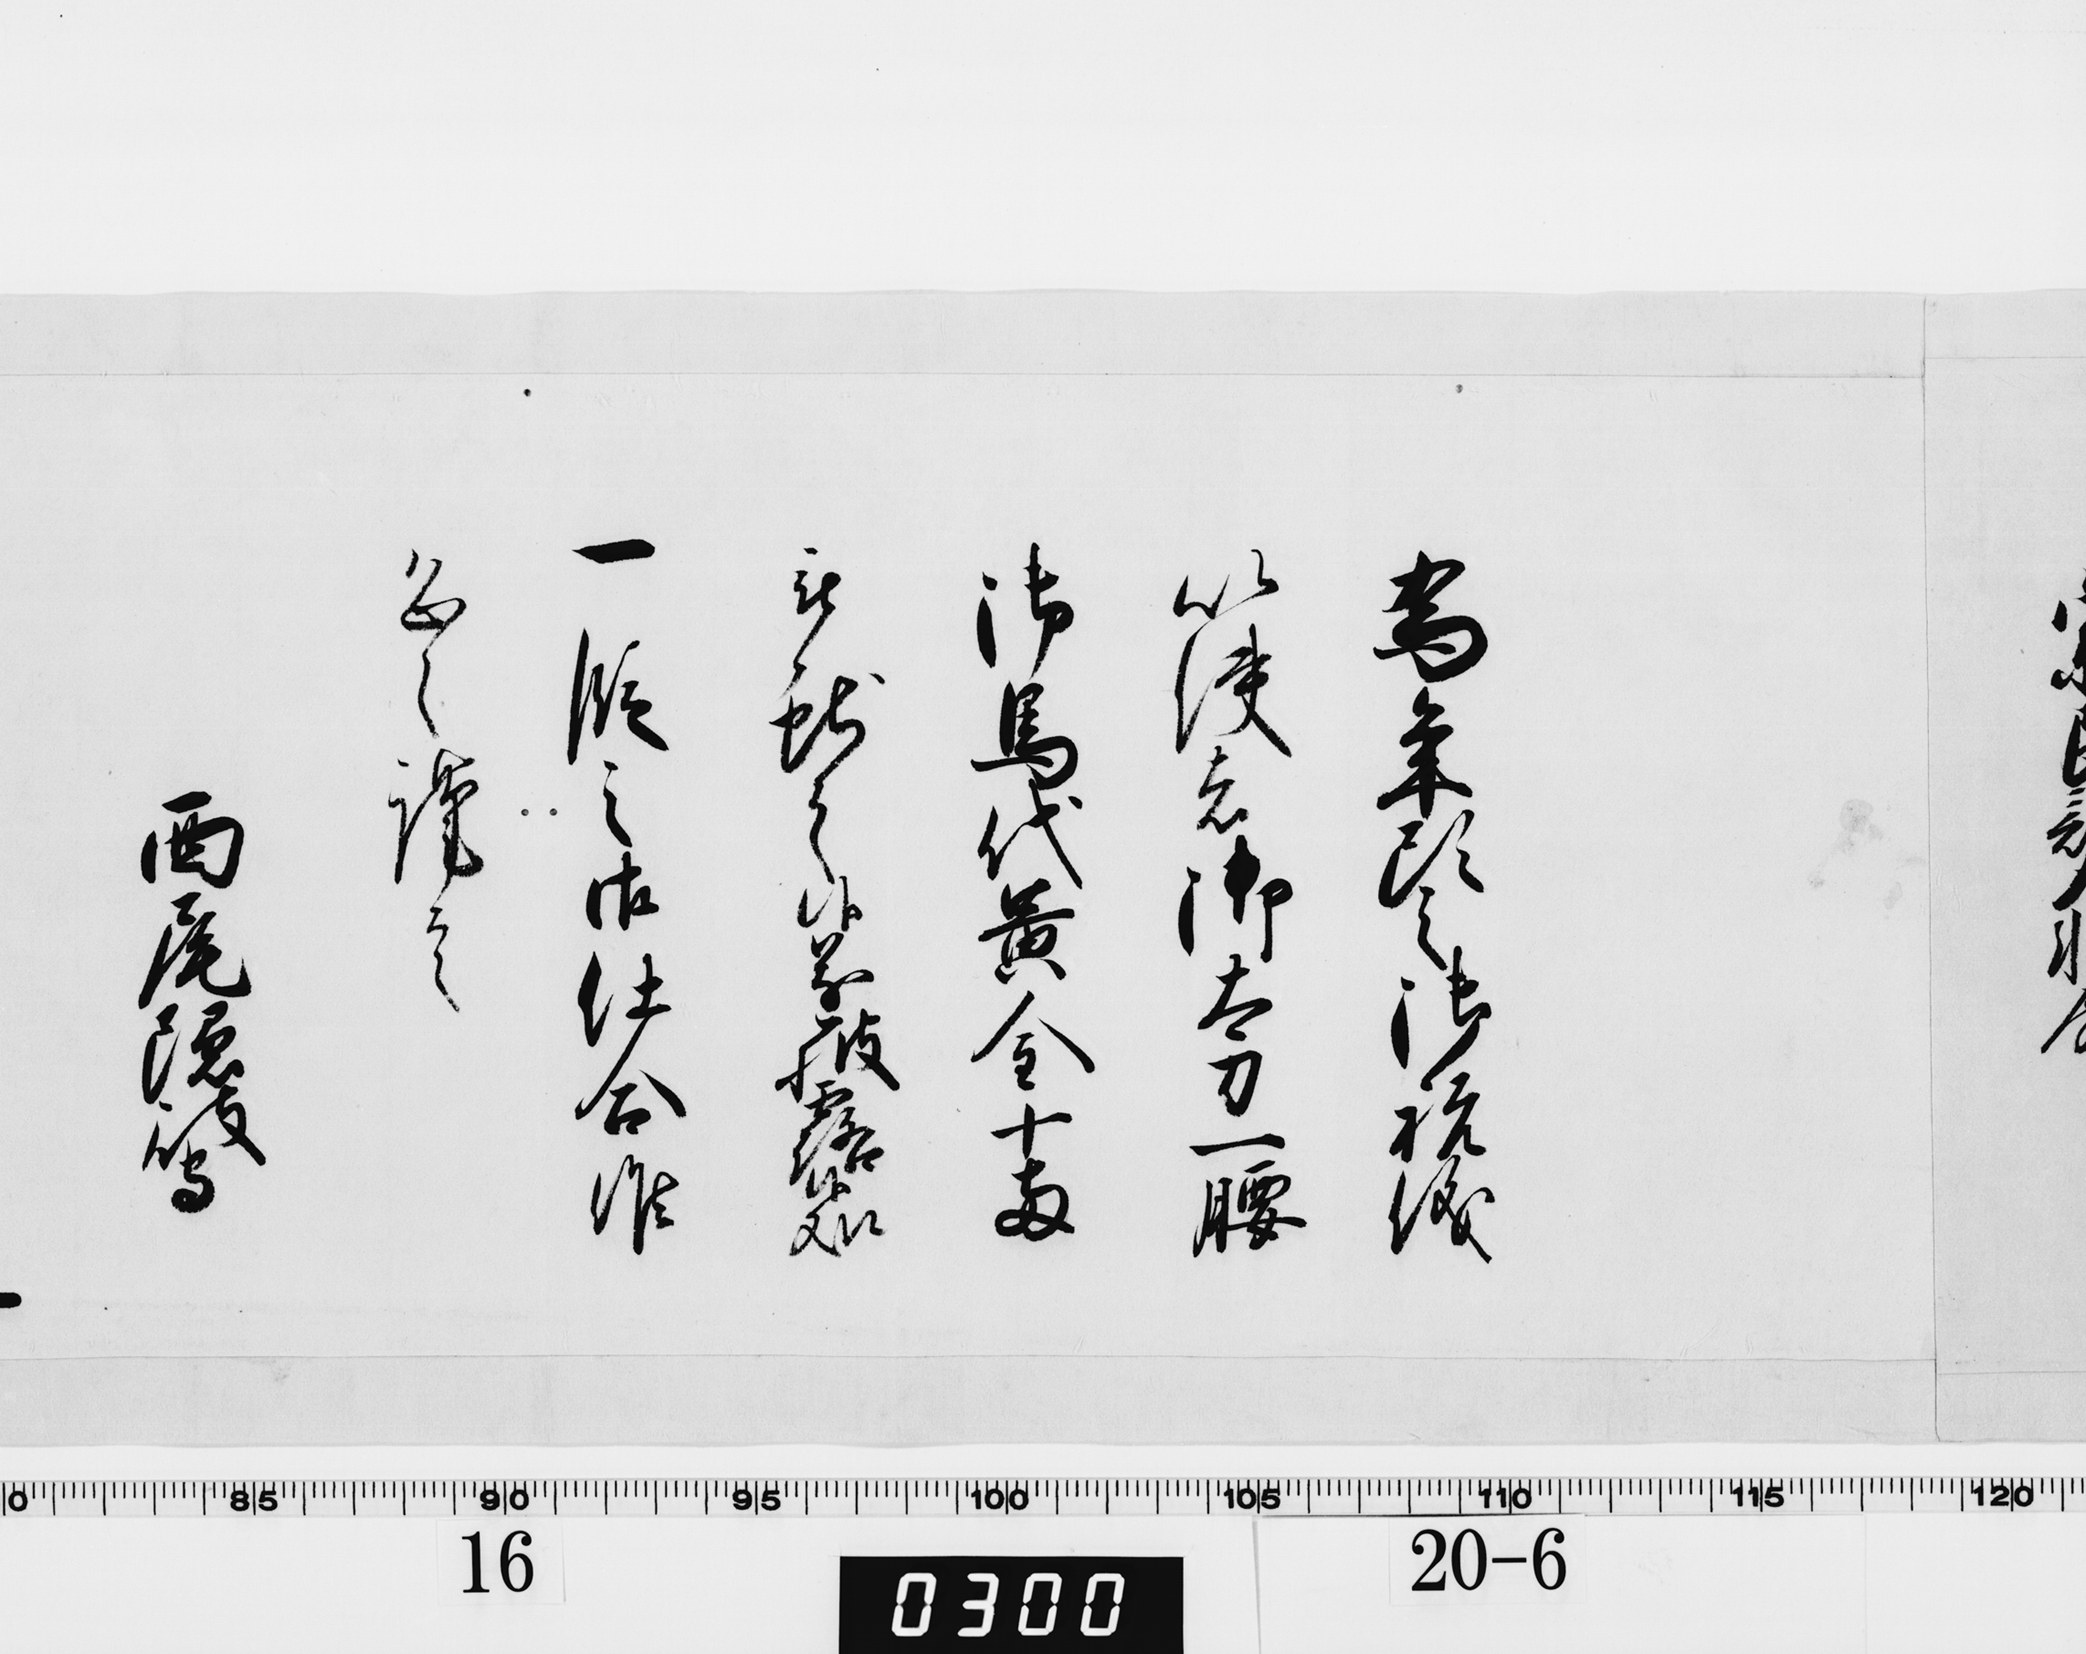 為年頭之御祝儀
以使者御太刀一腰
御馬代黄金十両
被献之候遂披露候処
一段之御仕合候
恐々謹言
西尾隠岐守
0 85 90 95 100 105 110 115 120
16
0300
20-6